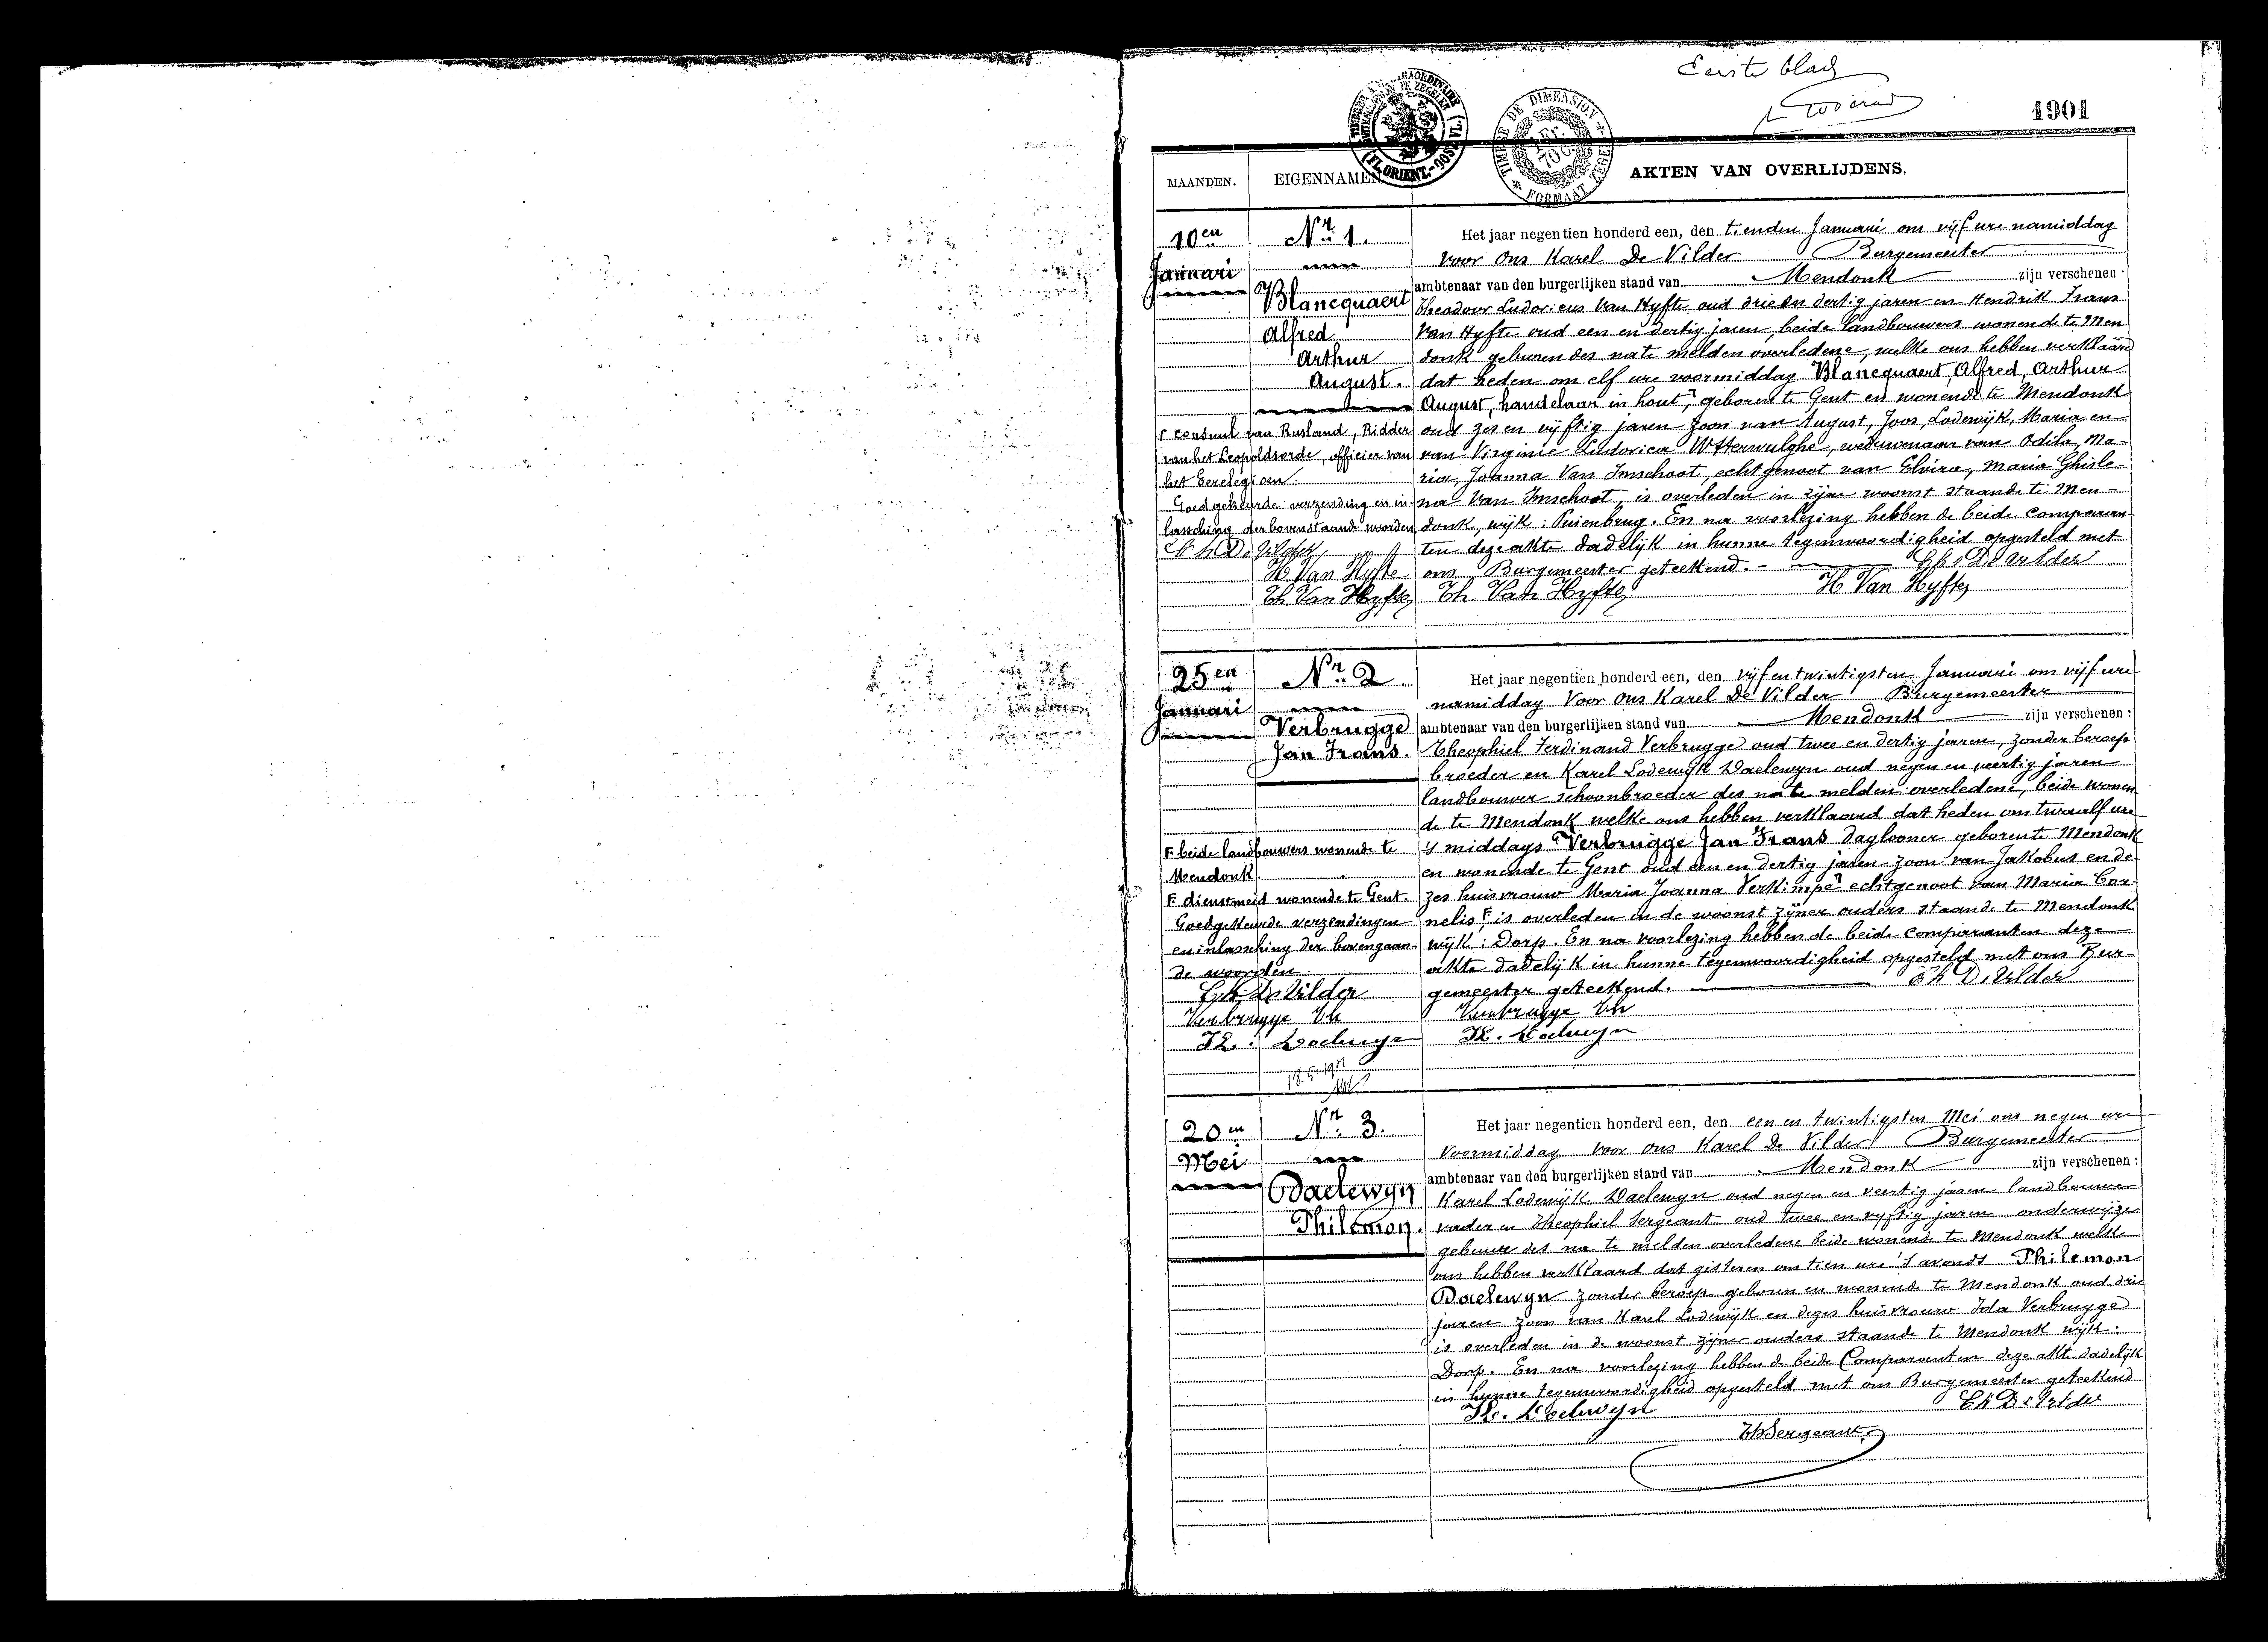 Eerste blad
1901
TIMBRE EXTRAORDINAIRE
BUITENGEWOON TE ZEGELEN
(FL. ORIENT.-OOST VL.)
TIMBRE DE DIMENSION
1 Fr. 70 C.
FORMAAT ZEGEL
MAANDEN. EIGENNAMEN AKTEN VAN OVERLIJDENS.
10en Januari
Nr. 1.
Blancquaert
Alfred
Arthur
August.
Γ consul van Rusland, Ridder
van het Leopoldsorde, officier van
het Eerelegioen.
Goedgekeurde verzending en in-
lassching der bovenstaande woorden
Ch De Vilder
H Van Hyfte
Th Van Hyfte
Het jaar negentien honderd een, den tienden Januari om vijf ure namiddag
voor ons Karel De Vilder Burgemeester
ambtenaar van den burgerlijken stand van Mendonk zijn verschenen:
Theodoor Ludovicus Van Hyfte oud drie en dertig jaren en Hendrik Frans
Van Hyfte oud een en dertig jaren, beide landbouwers wonende te Men
donk geburen des na te melden overledene, welke ons hebben verklaard
dat heden om elf ure voormiddag Blancquaert, Alfred, Arthur
August, handelaar in hout, Γ geboren te Gent en wonende te Mendonk
oud zes en vijftig jaren zoon van August, Joos, Lodewijk, Maria en
van Virginie Ludovica Wtterwulghe, weduwenaar van Odila, Ma-
ria, Joanna Van Imschoot, echtgenoot van Elvira, Maria Ghisle-
na Van Imschoot, is overleden in zijne woonst staande te Men-
donk, wijk: Puienbrug. En na voorlezing hebben de beide comparan-
ten deze akte dadelijk in hunne tegenwoordigheid opgesteld met
ons, Burgemeester geteekend. - Ch De Vilder
Th Van Hyfte H Van Hyfte
25en Januari
Nr. 2.
Verbrugge
Jan Frans.
F beide landbouwers wonende te
Mendonk
F dienstmeid wonende te Gent
Goedgekeurde verzendingen
en inlassching der bovengaan-
de woorden.
Ch De Vilder
Verbrugge Th
KL. Daelwyn
Het jaar negentien honderd een, den vijf en twintigsten Januari om vijf ure
namiddag Voor ons Karel De Vilder Burgemeester
ambtenaar van den burgerlijken stand van Mendonk zijn verschenen:
Theophiel Ferdinand Verbrugge oud twee en dertig jaren, zonder beroep
broeder en Karel Lodewijk Daelewyn oud negen en veertig jaren
landbouwer schoonbroeder des na te melden overledene, beide wonen
de te Mendonk welke ons hebben verklaard dat heden om twaalf ure
's middags Verbrugge Jan Frans daglooner geboren te Mendonk
en wonende te Gent oud een en dertig jaren zoon van Jakobus en de-
zes huisvrouw Maria Joanna Verkimpe F echtgenoot van Maria Cor-
nelis F is overleden in de woonst zijner ouders staande te Mendonk
wijk: Dorp. En na voorlezing hebben de beide comparanten deze
akte dadelijk in hunne tegenwoordigheid opgesteld met ons Bur-
gemeester geteekend. Ch De Vilder
Verbrugge Th
KL. Daelwyn
20en Mei
Nr. 3.
Daelewyn
Philemon.
Het jaar negentien honderd een, den een en twintigsten Mei om negen ure
voormiddag voor ons Karel De Vilder Burgemeester
ambtenaar van den burgerlijken stand van Mendonk zijn verschenen:
Karel Lodewijk Daelewyn oud negen en veertig jaren landbouwer
vader en Theophiel Sergeant oud twee en vyftig jaren onderwijzer
gebuur des na te melden overledene beide wonende te Mendonk welke
ons hebben verklaard dat gisteren om tien ure 's avonds Philemon
Daelewyn zonder beroep geboren en wonende te Mendonk oud drie
jaren zoon van Karel Lodewijk en dezes huisvrouw Ida Verbrugge
is overleden in de woonst zijner ouders staande te Mendonk wijk:
Dorp. En na voorlezing hebben de beide Comparanten deze akte dadelijk
in hunne tegenwoordigheid opgesteld met ons Burgemeester geteekend
KL. Daelwyn Ch De Vilder
Th Sergeant.